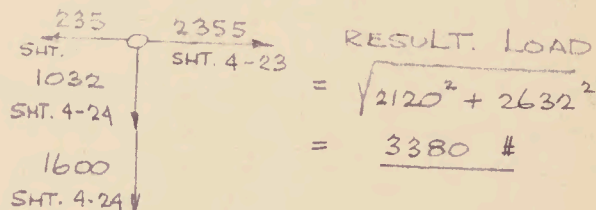 235 2355
SHT. SHT. 4-23
1032
SHT. 4-24
1600
SHT. 4-24
RESULT. LOAD
= √2120² + 2632²
= 3380 #